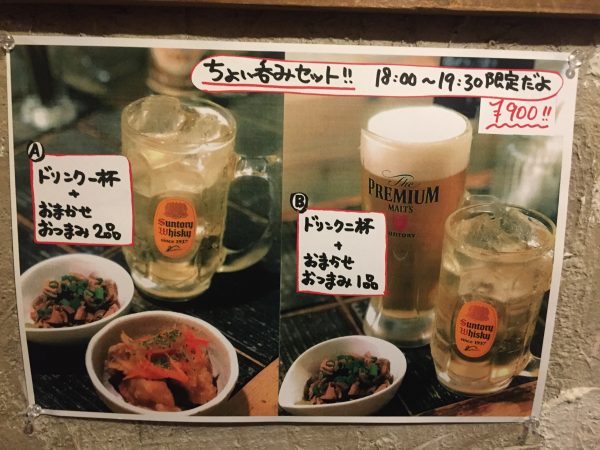 ちょい呑みセット!! 18:00～19:30限定だよ
¥900!!
A
ドリンク一杯
+
おまかせ
おつまみ2品
Suntory
Whisky
since 1937
B
ドリンク二杯
+
おまかせ
おつまみ1品
The
PREMIUM
MALT'S
SUNTORY
Suntory
Whisky
since 1937